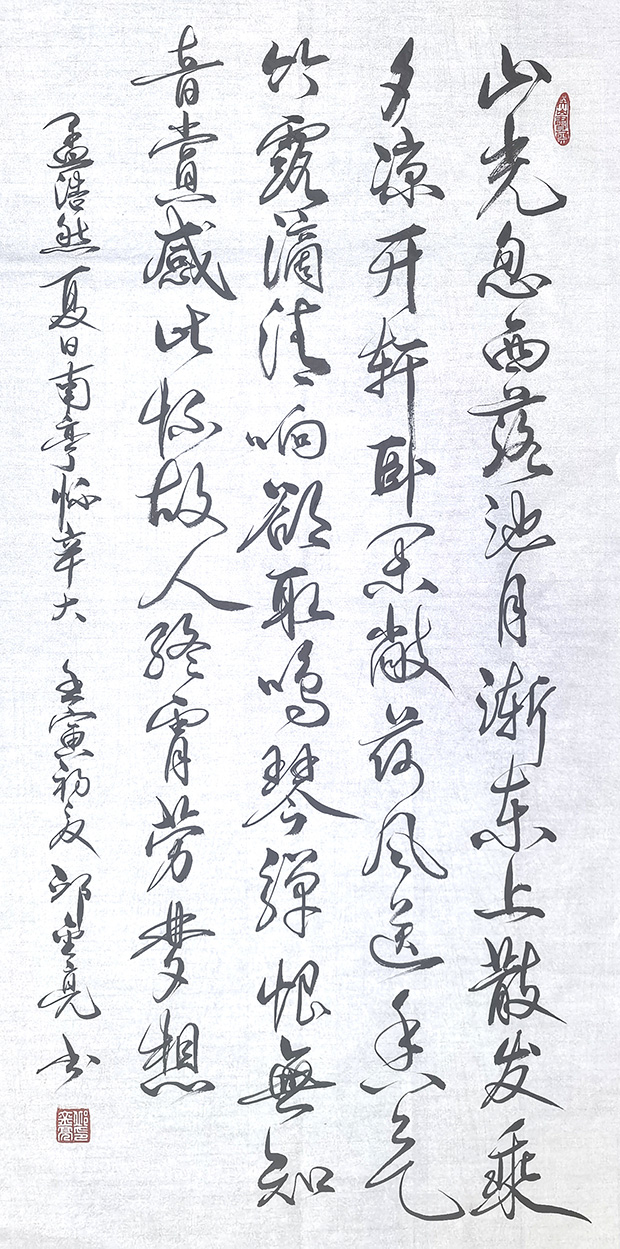 山光忽西落池月渐东上散发乘
夕凉开轩卧闲敞荷风送香气
竹露滴清响欲取鸣琴弹恨無知
音赏感此怀故人终宵劳梦想
孟浩然夏日南亭怀辛大 壬寅初夏 邱金亮 书